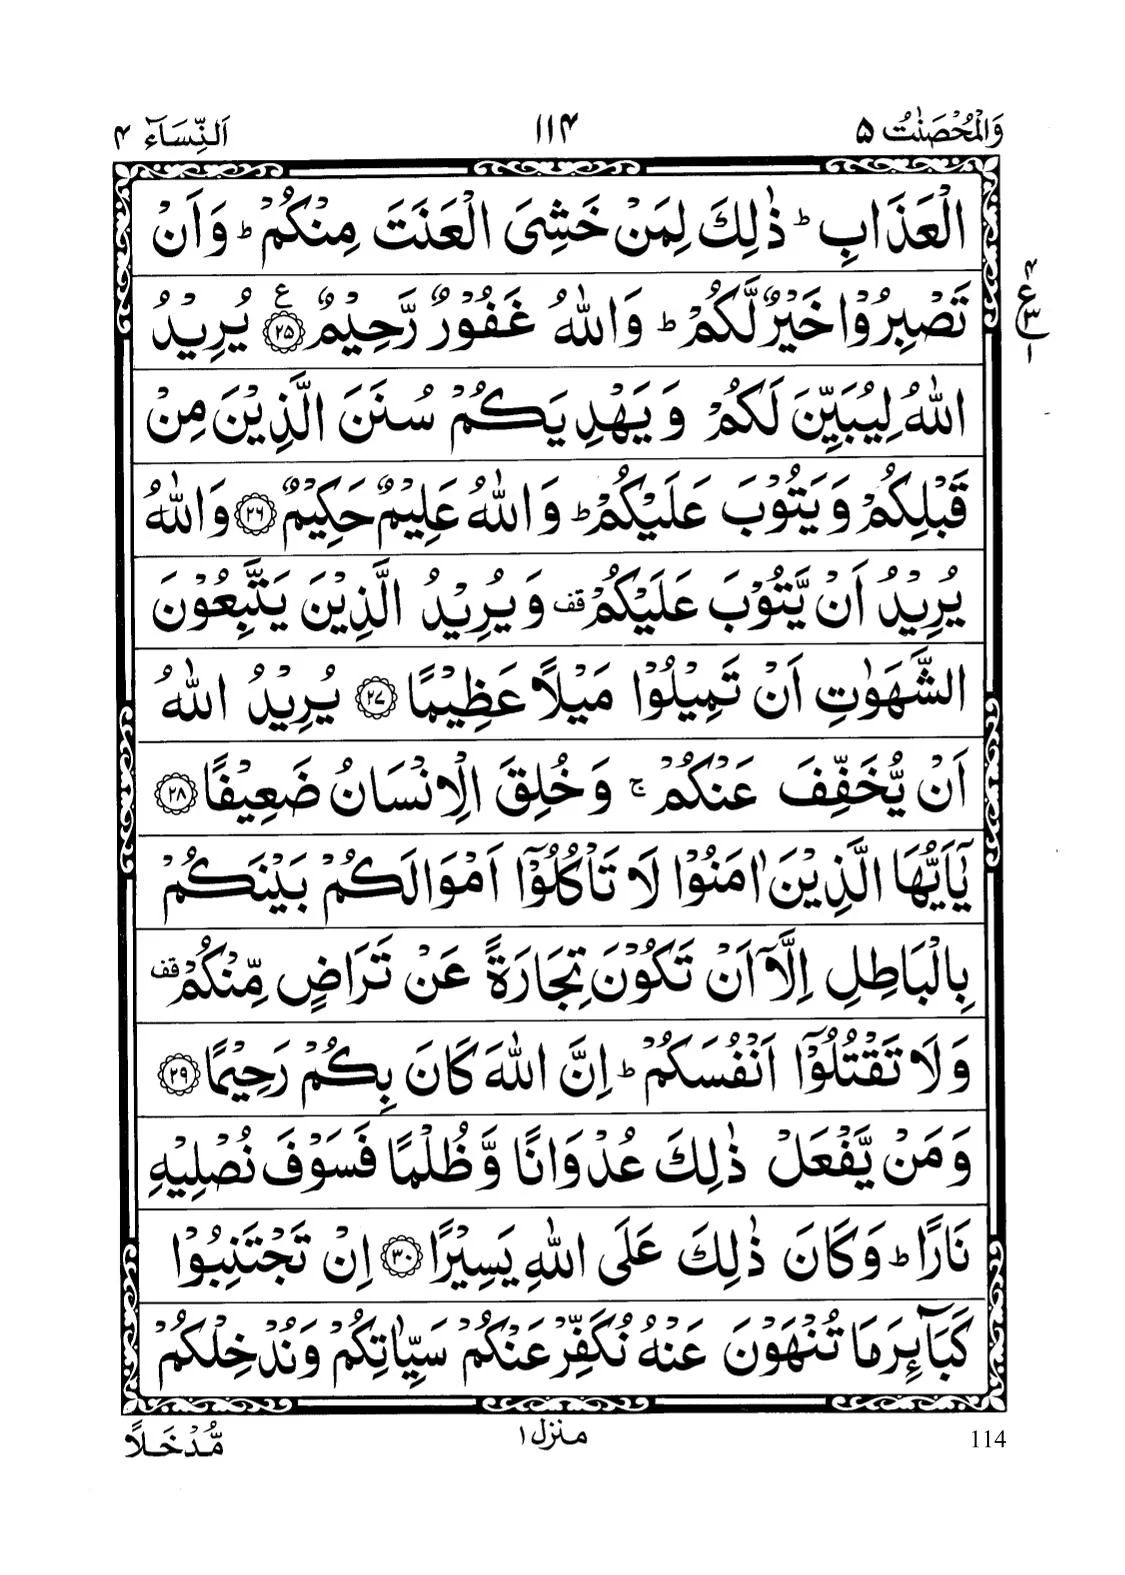 وَالْمُحْصَنٰتُ ۵
۱۱۴
اَلنِّسَآء ۴
الْعَذَابِ ؕ ذٰلِكَ لِمَنْ خَشِىَ الْعَنَتَ مِنْكُمْ ؕ وَاَنْ
تَصْبِرُوْا خَيْرٌ لَّكُمْ ؕ وَاللّٰهُ غَفُوْرٌ رَّحِيْمٌ ۲۵ ع يُرِيْدُ
۴
ع ۳
۱
اللّٰهُ لِيُبَيِّنَ لَكُمْ وَيَهْدِيَكُمْ سُنَنَ الَّذِيْنَ مِنْ
قَبْلِكُمْ وَيَتُوْبَ عَلَيْكُمْ ؕ وَاللّٰهُ عَلِيْمٌ حَكِيْمٌ ۲۶ وَاللّٰهُ
يُرِيْدُ اَنْ يَّتُوْبَ عَلَيْكُمْ قف وَيُرِيْدُ الَّذِيْنَ يَتَّبِعُوْنَ
الشَّهَوٰتِ اَنْ تَمِيْلُوْا مَيْلًا عَظِيْمًا ۲۷ يُرِيْدُ اللّٰهُ
اَنْ يُّخَفِّفَ عَنْكُمْ ۚ وَخُلِقَ الْاِنْسَانُ ضَعِيْفًا ۲۸
يٰٓاَيُّهَا الَّذِيْنَ اٰمَنُوْا لَا تَاْكُلُوْٓا اَمْوَالَكُمْ بَيْنَكُمْ
بِالْبَاطِلِ اِلَّآ اَنْ تَكُوْنَ تِجَارَةً عَنْ تَرَاضٍ مِّنْكُمْ قف
وَلَا تَقْتُلُوْٓا اَنْفُسَكُمْ ؕ اِنَّ اللّٰهَ كَانَ بِكُمْ رَحِيْمًا ۲۹
وَمَنْ يَّفْعَلْ ذٰلِكَ عُدْوَانًا وَّظُلْمًا فَسَوْفَ نُصْلِيْهِ
نَارًا ؕ وَكَانَ ذٰلِكَ عَلَى اللّٰهِ يَسِيْرًا ۳۰ اِنْ تَجْتَنِبُوْا
كَبَآئِرَ مَا تُنْهَوْنَ عَنْهُ نُكَفِّرْ عَنْكُمْ سَيِّاٰتِكُمْ وَنُدْخِلْكُمْ
114
منزل ۱
مُّدْخَلًا